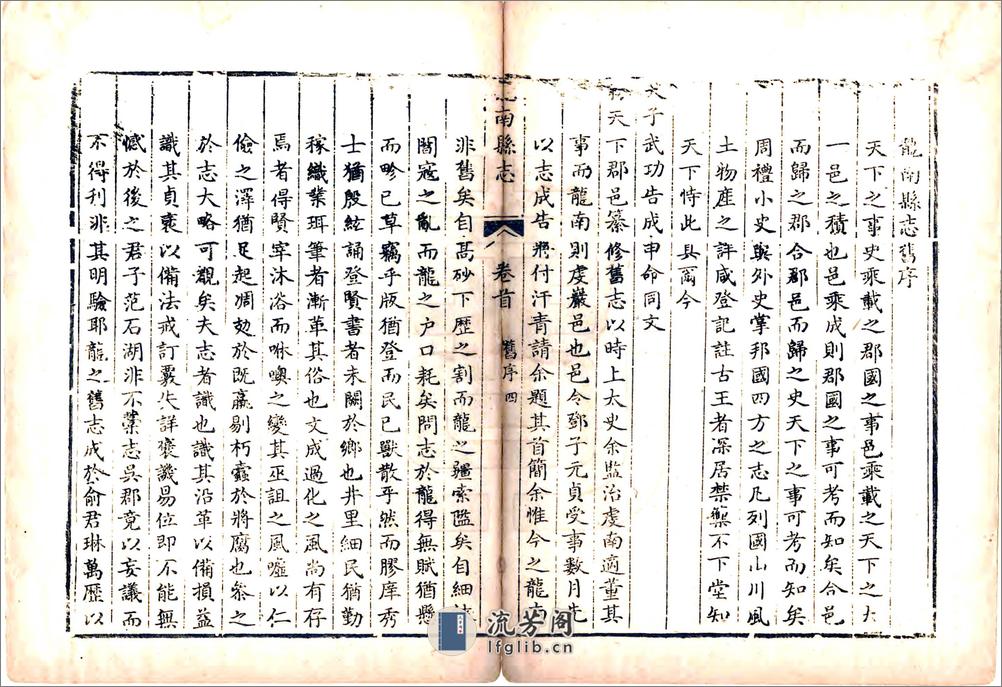 龍南縣志舊序
天下之事史乘載之郡國之事邑乘載之天下之大
一邑之積也邑乘成則郡國之事可考而知矣合邑
而歸之郡合郡邑而歸之史天下之事可考而知矣
周禮小史與外史掌邦國四方之志凡列國山川風
土物產之詳咸登記註古王者深居禁籞不下堂知
天下恃此具焉今
天子武功告成申命同文
天下郡邑纂修舊志以時上太史余監治虔南適董其
事而龍南則虔巖邑也邑令鄧子元貞受事數月先
以志成告將付汗青請余題其首簡余惟今之龍
南縣志
卷首
舊序
四
非舊矣自高砂下歷之割而龍之疆索隘矣自細
閣寇之亂而龍之户口耗矣問志於龍得無賦猶懸
而畛已草竊乎版猶登而民已獸散乎然而膠庠秀
士猶殷絃誦登賢書者未闕於鄉也井里細民猶勤
稼織業珥筆者漸革其俗也文成過化之風尚有存
焉者得賢宰沐浴而咻噢之變其巫詛之風嘘以仁
儉之澤猶足起凋勉於既羸剔朽蠹於將腐也叅之
於志大略可觀矣夫志者識也識其沿革以備損益
識其貞衺以備法戒訂覈失詳褒譏易位即不能無
憾於後之君子范石湖非不藁志吳郡竟以妄議而
不得刊非其明驗耶龍之舊志成於俞君琳萬歷以
流芳阁
lfglib.cn